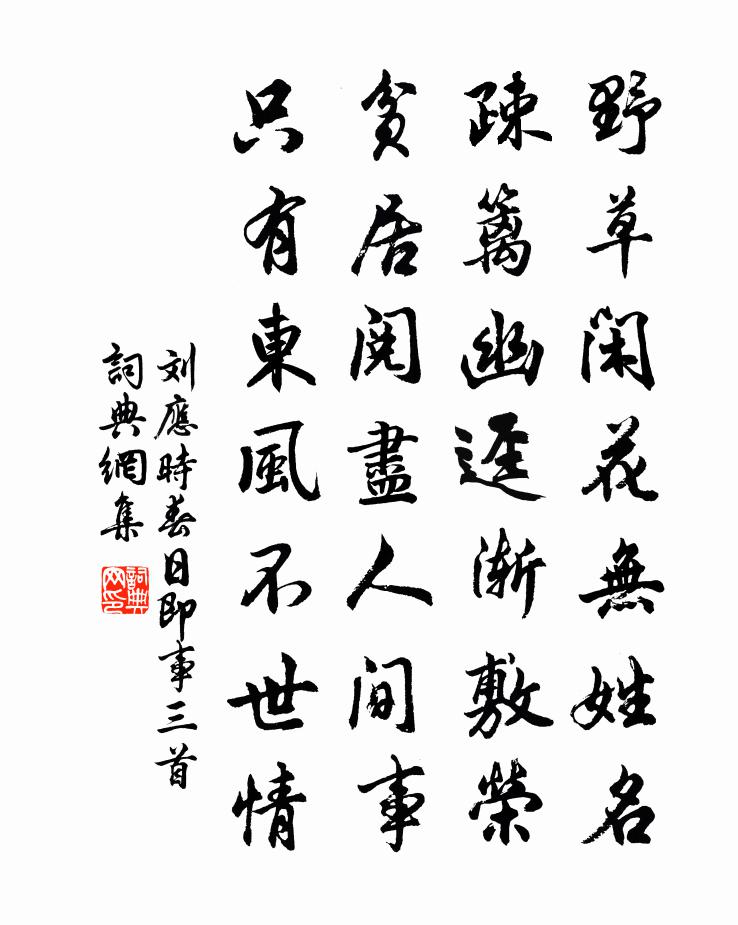 野草閑花無姓名
疎籬幽逕漸敷榮
貧居閱盡人間事
只有東風不世情
刘應時春日即事三首
詞典網集
詞典网印